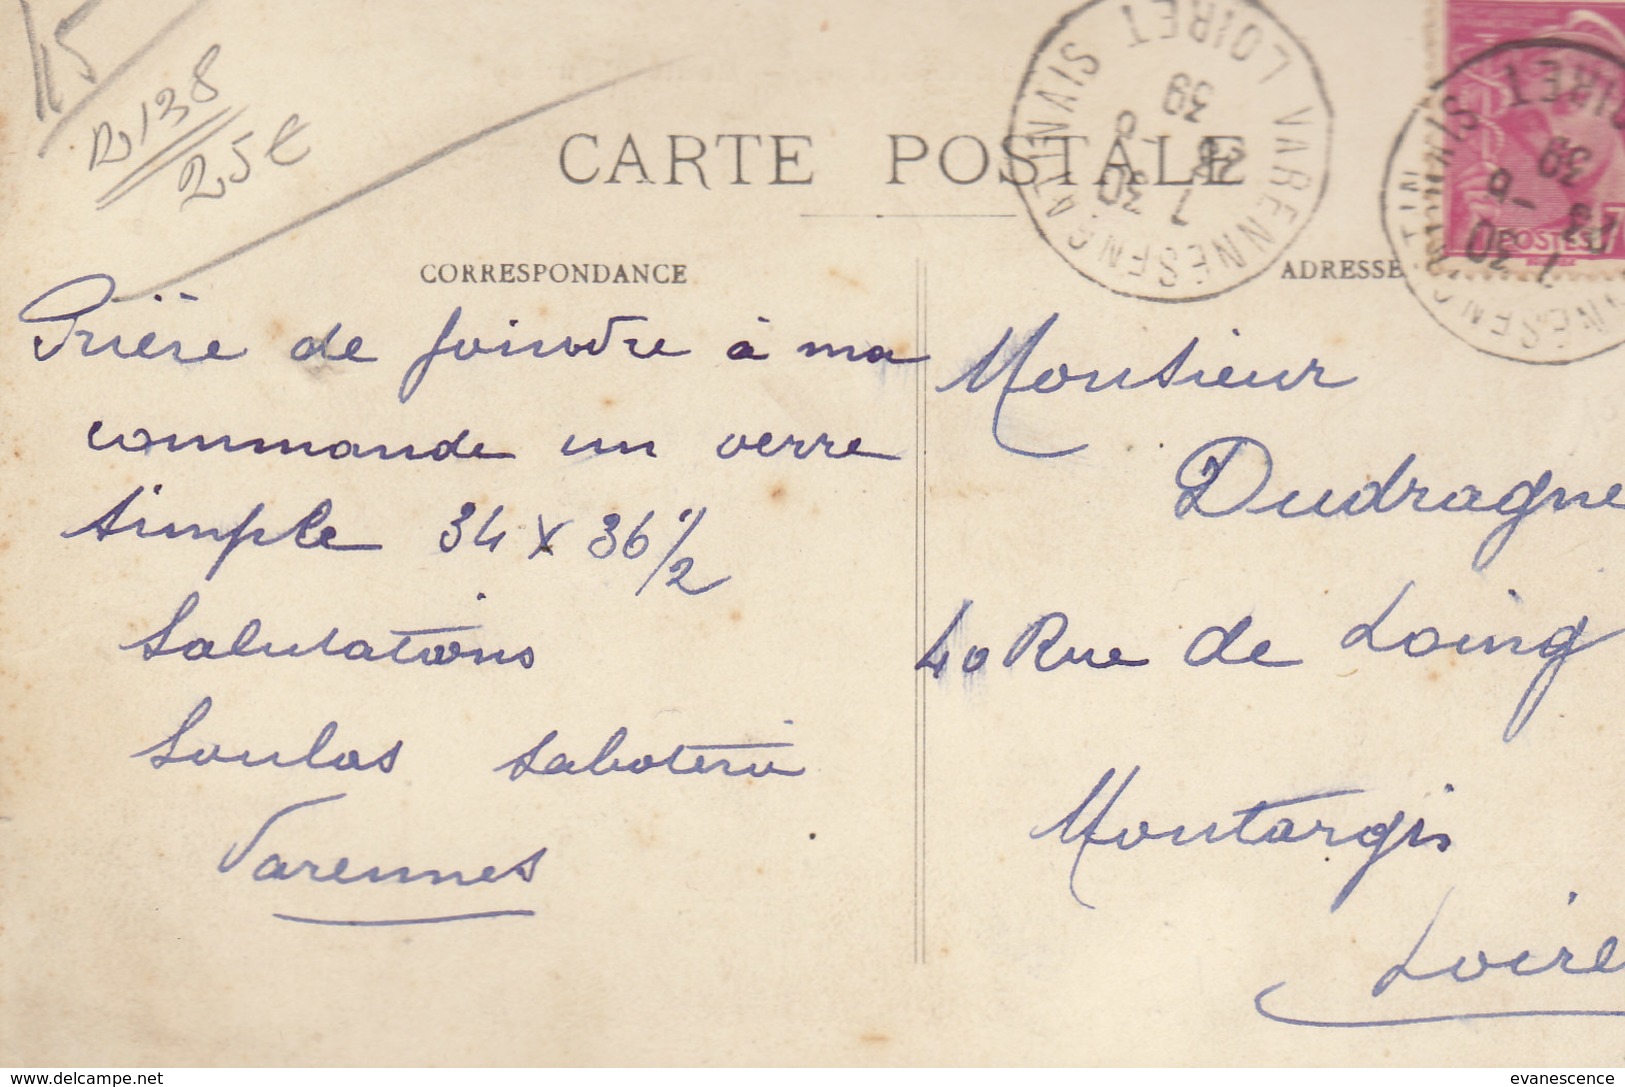 15
R, 138
2,5 €
CARTE POSTALE
CORRESPONDANCE
ADRESSE
VARENNES EN GATINAIS LOIRET
1 30
28 - 6
39
POSTES
Prière de joindre à ma
commande un verre
simple 34 x 36 1/2
Salutations
Soulas saboterie
Varennes
Monsieur
Dudragne
40 Rue de Loing
Montargis
Loire
delcampe.net
evanescence